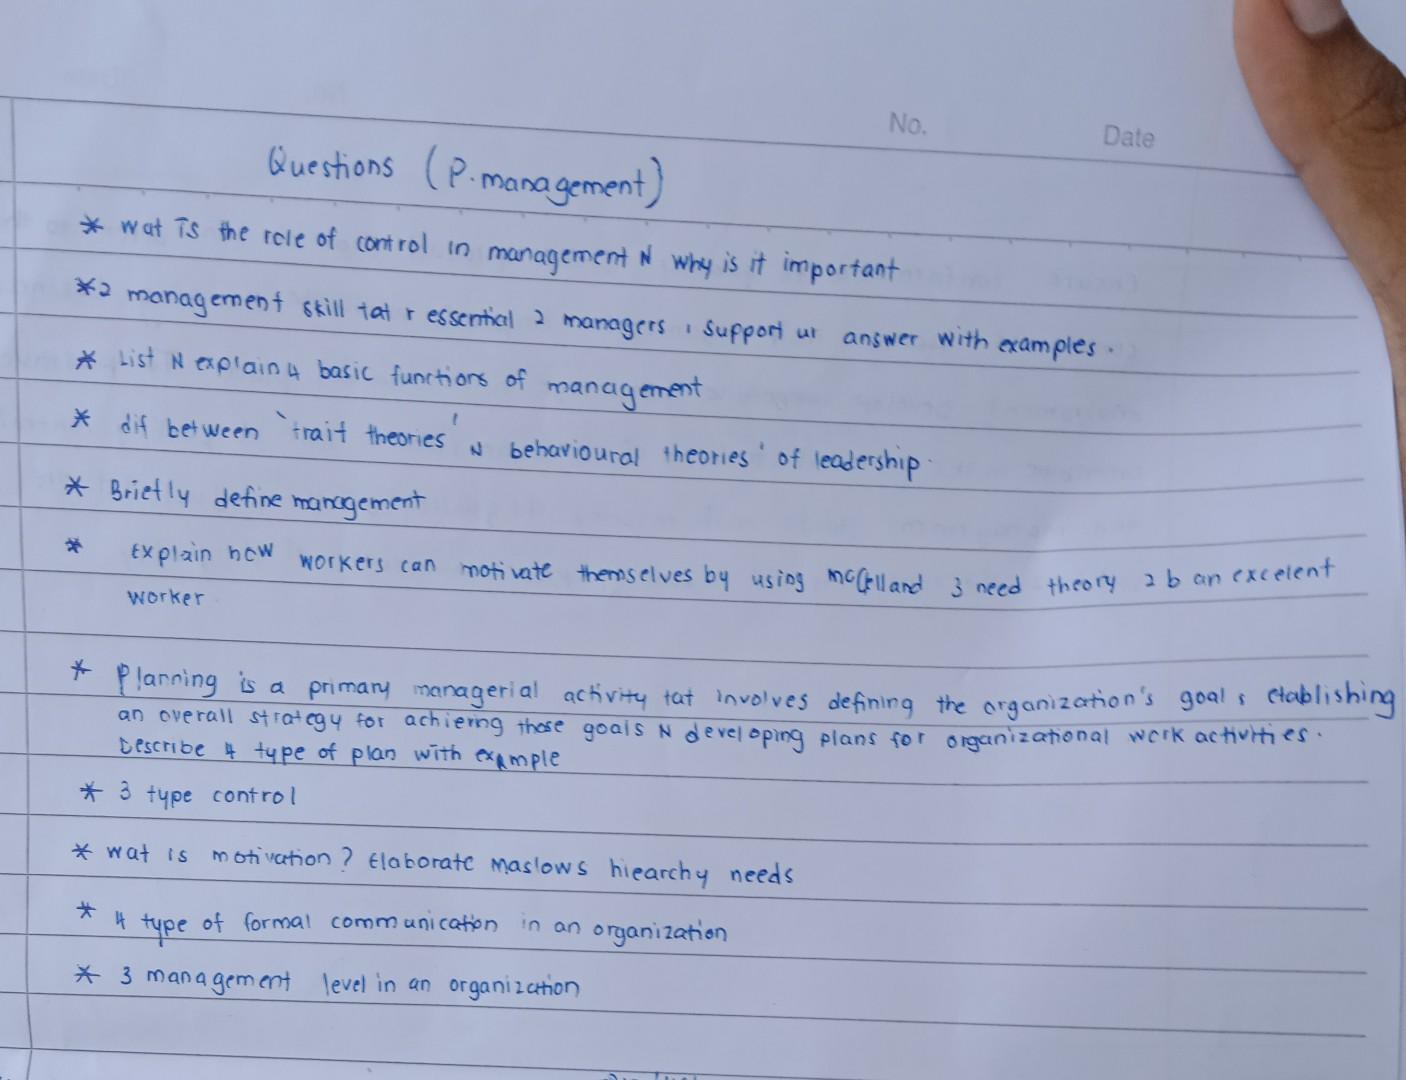 No.
Date
Questions (P. management)
* wat is the role of control in management N why is it important
*2 management skill tat r essential 2 managers, support ur answer with examples.
* List N explain 4 basic functions of management
* dif between 'trait theories' N behavioural theories' of leadership.
* Briefly define management
* Explain how workers can motivate themselves by using mcClland 3 need theory 2 b an excelent
worker
* Planning is a primary managerial activity tat involves defining the organization's goals etablishing
an overall strategy for achieving those goals N developing plans for organizational work activities.
Describe 4 type of plan with example
* 3 type control
* wat is motivation? Elaborate maslows hiearchy needs
* 4 type of formal communication in an organization
* 3 management level in an organization